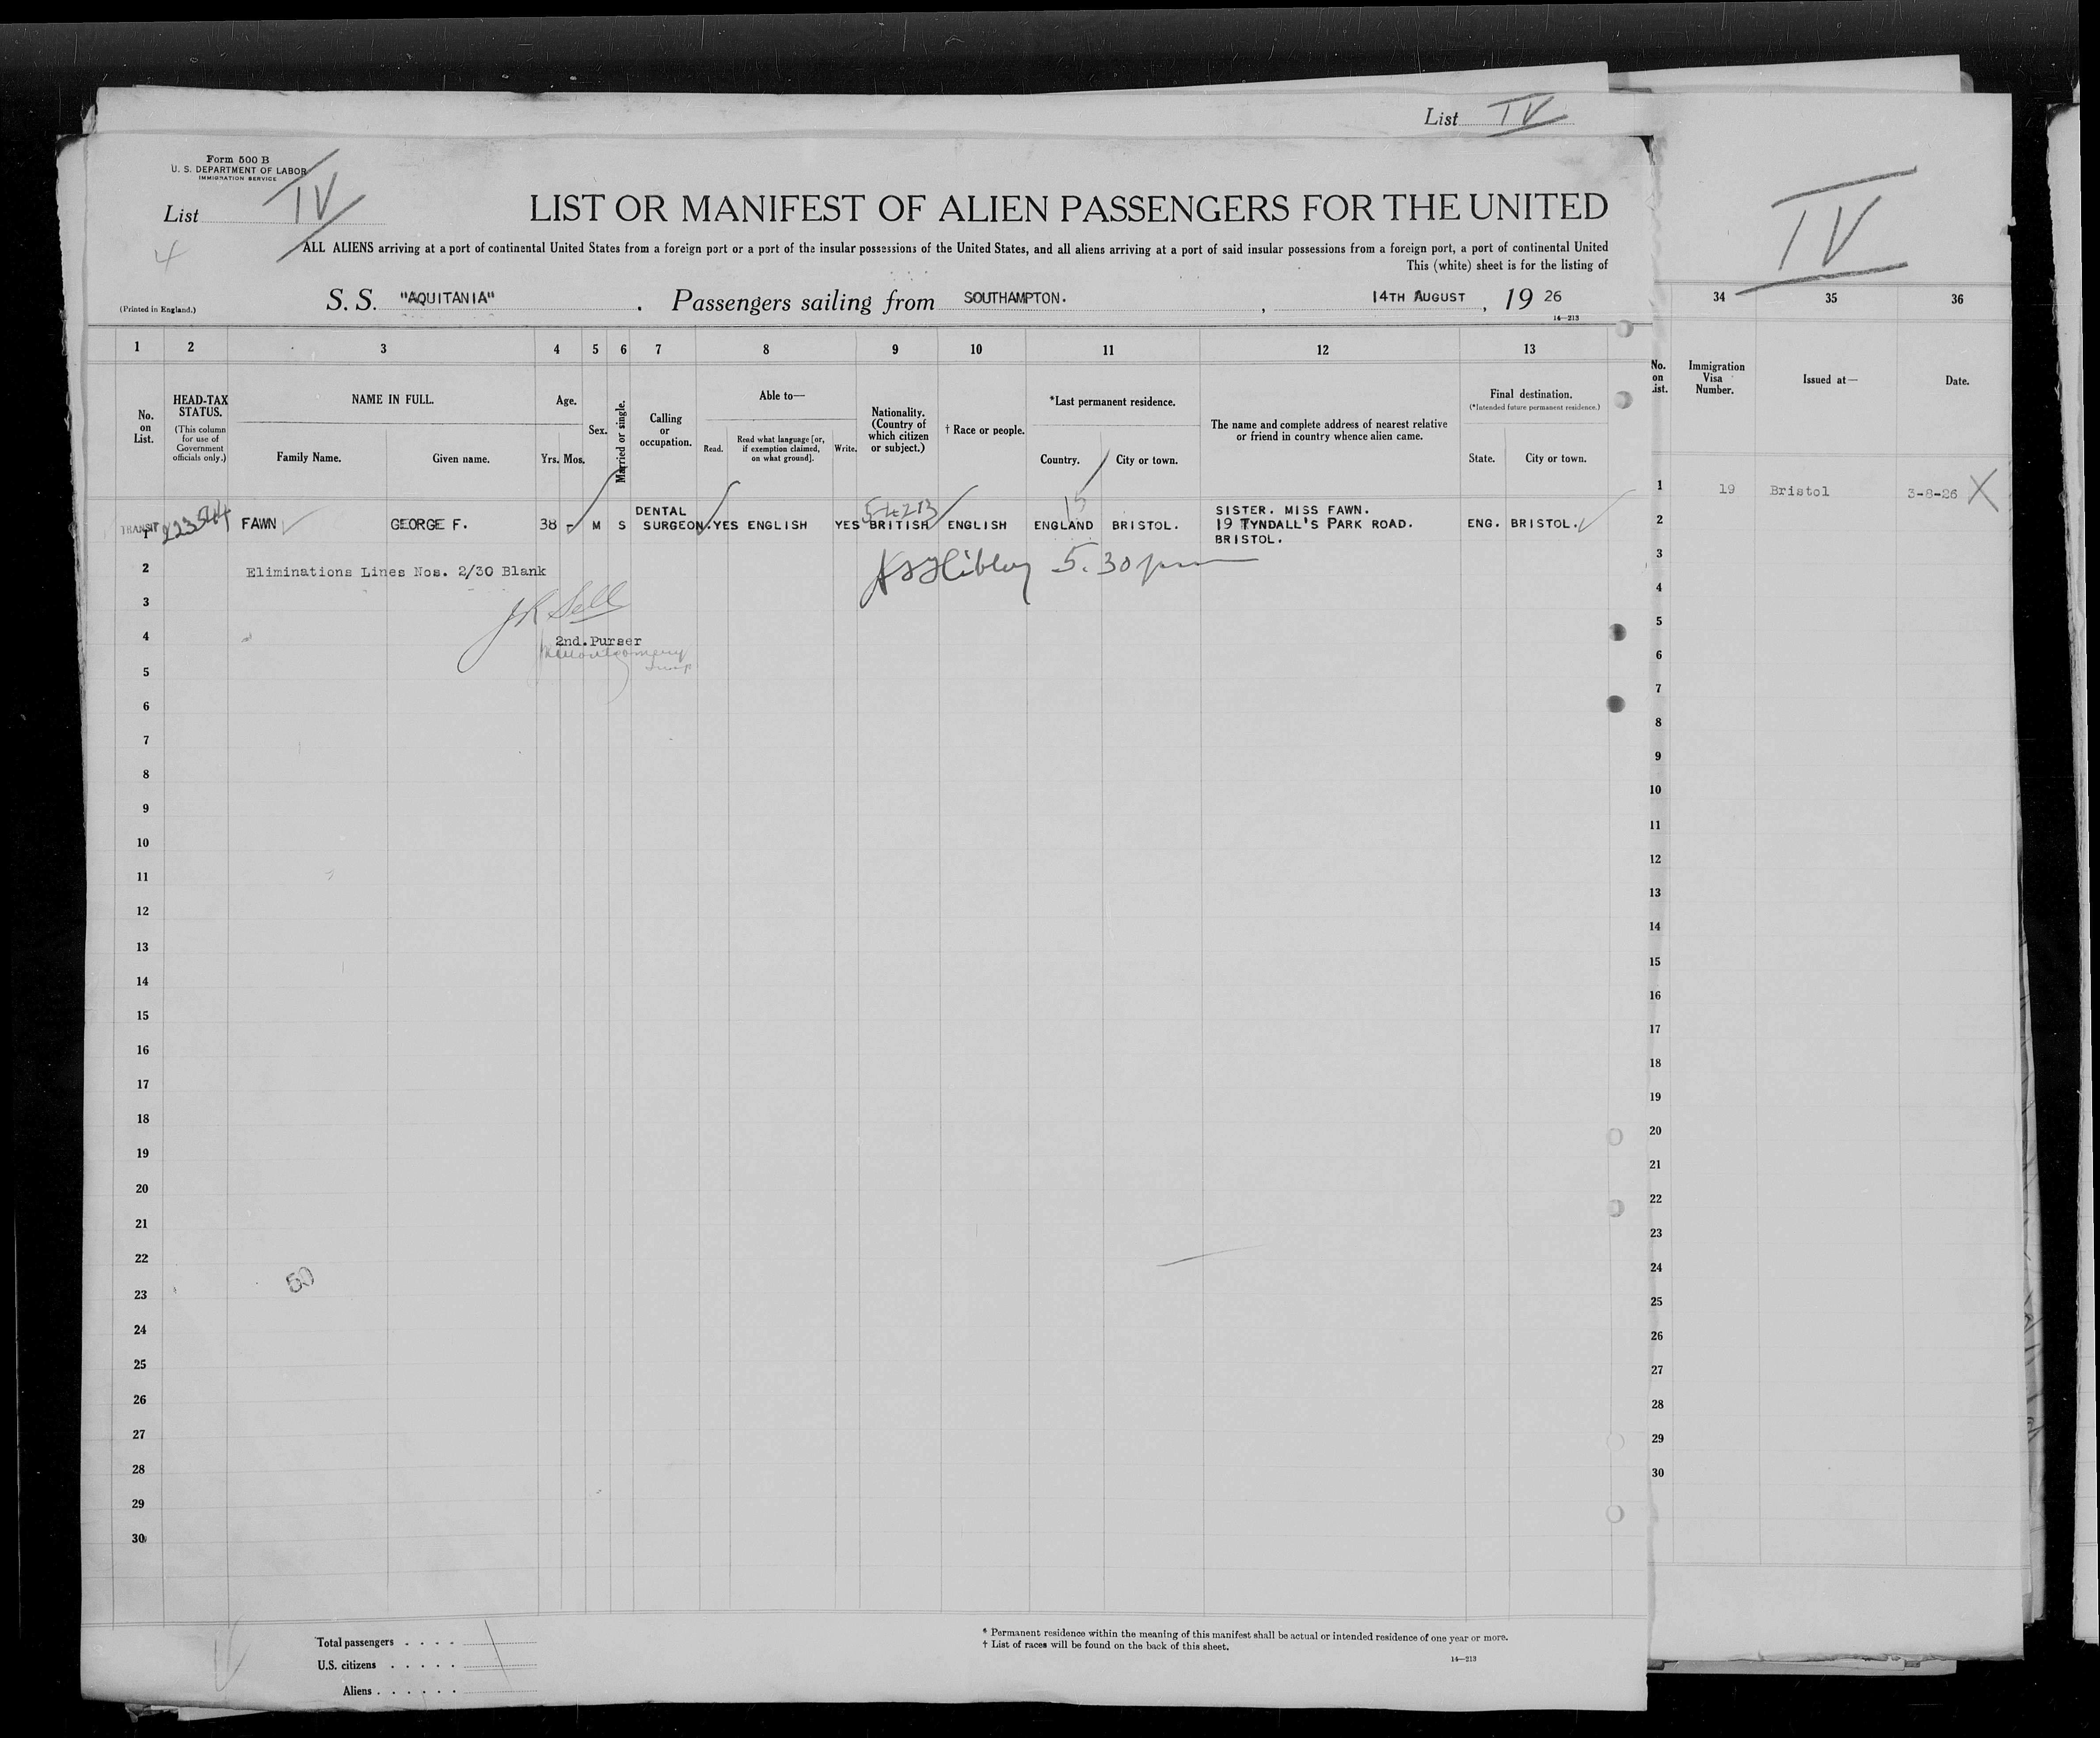 List IV
Form 500 B
U. S. DEPARTMENT OF LABOR
IMMIGRATION SERVICE
List IV
4
LIST OR MANIFEST OF ALIEN PASSENGERS FOR THE UNITED
ALL ALIENS arriving at a port of continental United States from a foreign port or a port of the insular possessions of the United States, and all aliens arriving at a port of said insular possessions from a foreign port, a port of continental United
This (white) sheet is for the listing of
(Printed in England.)
S. S. "AQUITANIA" . Passengers sailing from SOUTHAMPTON. , 14TH AUGUST , 19 26
14—213
1 2 3 4 5 6 7 8 9 10 11 12 13
No. on List.
HEAD-TAX STATUS.
(This column for use of Government officials only.)
NAME IN FULL.
Family Name. Given name.
Age.
Yrs. Mos.
Sex.
Married or single.
Calling or occupation.
Able to—
Read. Read what language [or, if exemption claimed, on what ground]. Write.
Nationality. (Country of which citizen or subject.)
† Race or people.
*Last permanent residence.
Country. City or town.
The name and complete address of nearest relative or friend in country whence alien came.
Final destination.
(*Intended future permanent residence.)
State. City or town.
TRANSIT
54213
15
1 FAWN GEORGE F. 38 - M S DENTAL SURGEON. YES ENGLISH YES BRITISH ENGLISH ENGLAND BRISTOL. SISTER. MISS FAWN. 19 TYNDALL'S PARK ROAD. BRISTOL. ENG. BRISTOL.
2 Eliminations Lines Nos. 2/30 Blank
5.30 pm
3
JR Sell
4 2nd. Purser
Montgomery
5
6
7
8
9
10
11
12
13
14
15
16
17
18
19
20
21
22
50
23
24
25
26
27
28
29
30
Total passengers . . . .
U.S. citizens . . . . .
Aliens . . . . . .
* Permanent residence within the meaning of this manifest shall be actual or intended residence of one year or more.
† List of races will be found on the back of this sheet.
14—213
IV
34 35 36
No. on List.
Immigration Visa Number.
Issued at—
Date.
1 19 Bristol 3-8-26 X
2
3
4
5
6
7
8
9
10
11
12
13
14
15
16
17
18
19
20
21
22
23
24
25
26
27
28
29
30